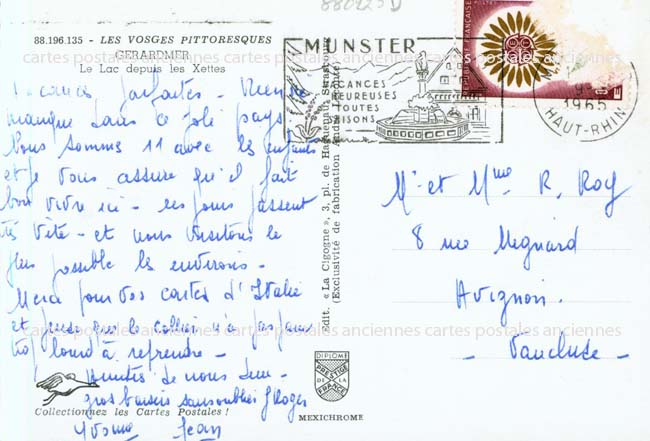 880225D
88.196.135 - LES VOSGES PITTORESQUES
GERARDMER
Le Lac depuis les Xettes
Vacances parfaites - Rien ne
manque dans ce joli pays
Nous sommes 11 avec les enfants
et je vous assure qu'il fait
bon vivre ici - les jours passent
très vite - et nous visitons le
plus possible les environs -
Merci pour vos cartes d'Italie
et pense que le collier n'a pas paru
trop lourd à reprendre -
Amitiés de nous deux -
gros baisers sans oublier Roger
Yvonne Jean
Collectionnez les Cartes Postales !
Edit. « La Cigogne », 3, pl. de Haguenau, Strasbourg
(Exclusivité de fabrication
MUNSTER
VACANCES
HEUREUSES
TOUTES
SAISONS
REPUBLIQUE FRANÇAISE
1965
HAUT-RHIN
Mr et Mme R. Roy
8 rue Mignard
Avignon.
- Vaucluse -
DIPLOME
PRESTIGE
DE LA
FRANCE
MEXICHROME
cartes postales anciennes cartes postales anciennes cartes postales anciennes